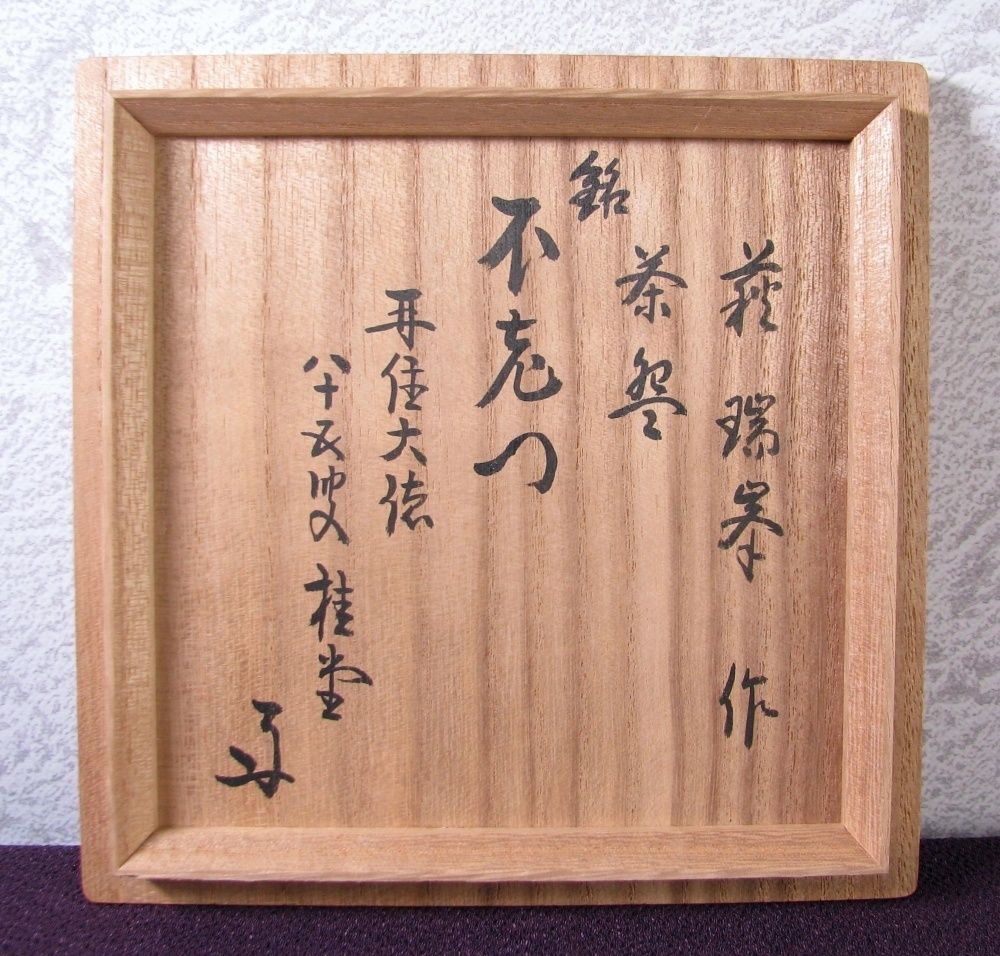 萩 瑞峯 作
茶盌
銘
不老門
再住大徳
八十五叟 桂堂